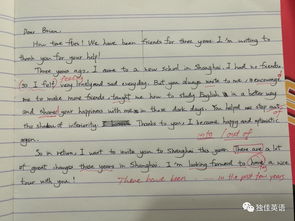 Dear Brian,
How time flies! We have been friends for three years. I'm writing to
thank you for your help!
Three years ago, I came to a new school in Shanghai. I had no friends
feeling
(so I felt very lonely and sad everyday. But you always wrote to me, encourage
me to make more friends, taught me how to study English in a better way
and shared your happiness with me in those dark days. You helped me step out
the shadow of inferiority. Thanks to you, I became happy and optimistic
again.
into / out of
So in return, I want to invite you to Shanghai this year. There are a lot
of great changes these years in Shanghai. I'm looking forward to have a nice
tour with you!
There have been in the past few years
独佳英语